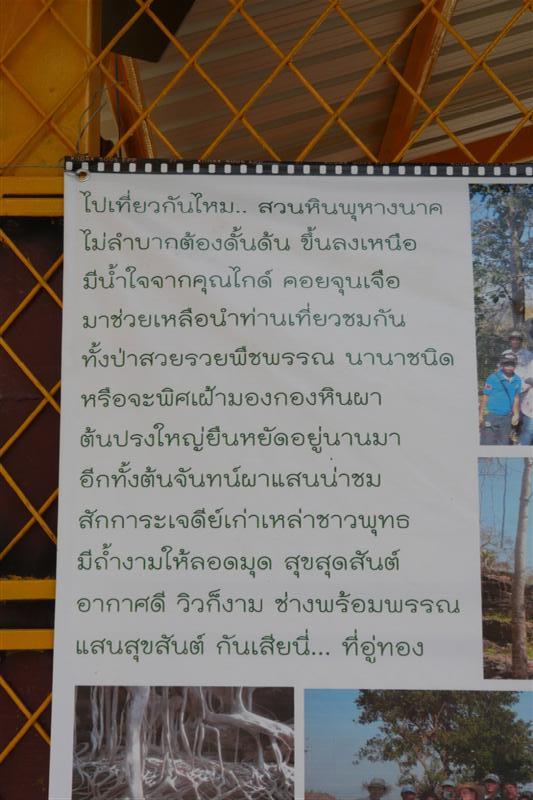 ไปเที่ยวกันไหม.. สวนหินพุหางนาค
ไม่ลำบากต้องดั้นด้น ขึ้นลงเหนือ
มีน้ำใจจากคุณไกด์ คอยจุนเจือ
มาช่วยเหลือนำท่านเที่ยวชมกัน
ทั้งป่าสวยรวยพืชพรรณ นานาชนิด
หรือจะพิศเฝ้ามองกองหินผา
ต้นปรงใหญ่ยืนหยัดอยู่นานมา
อีกทั้งต้นจันทน์ผาแสนน่าชม
สักการะเจดีย์เก่าเหล่าชาวพุทธ
มีถ้ำงามให้ลอดมุด สุขสุดสันต์
อากาศดี วิวก็งาม ช่างพร้อมพรรณ
แสนสุขสันต์ กันเสียนี่... ที่อู่ทอง